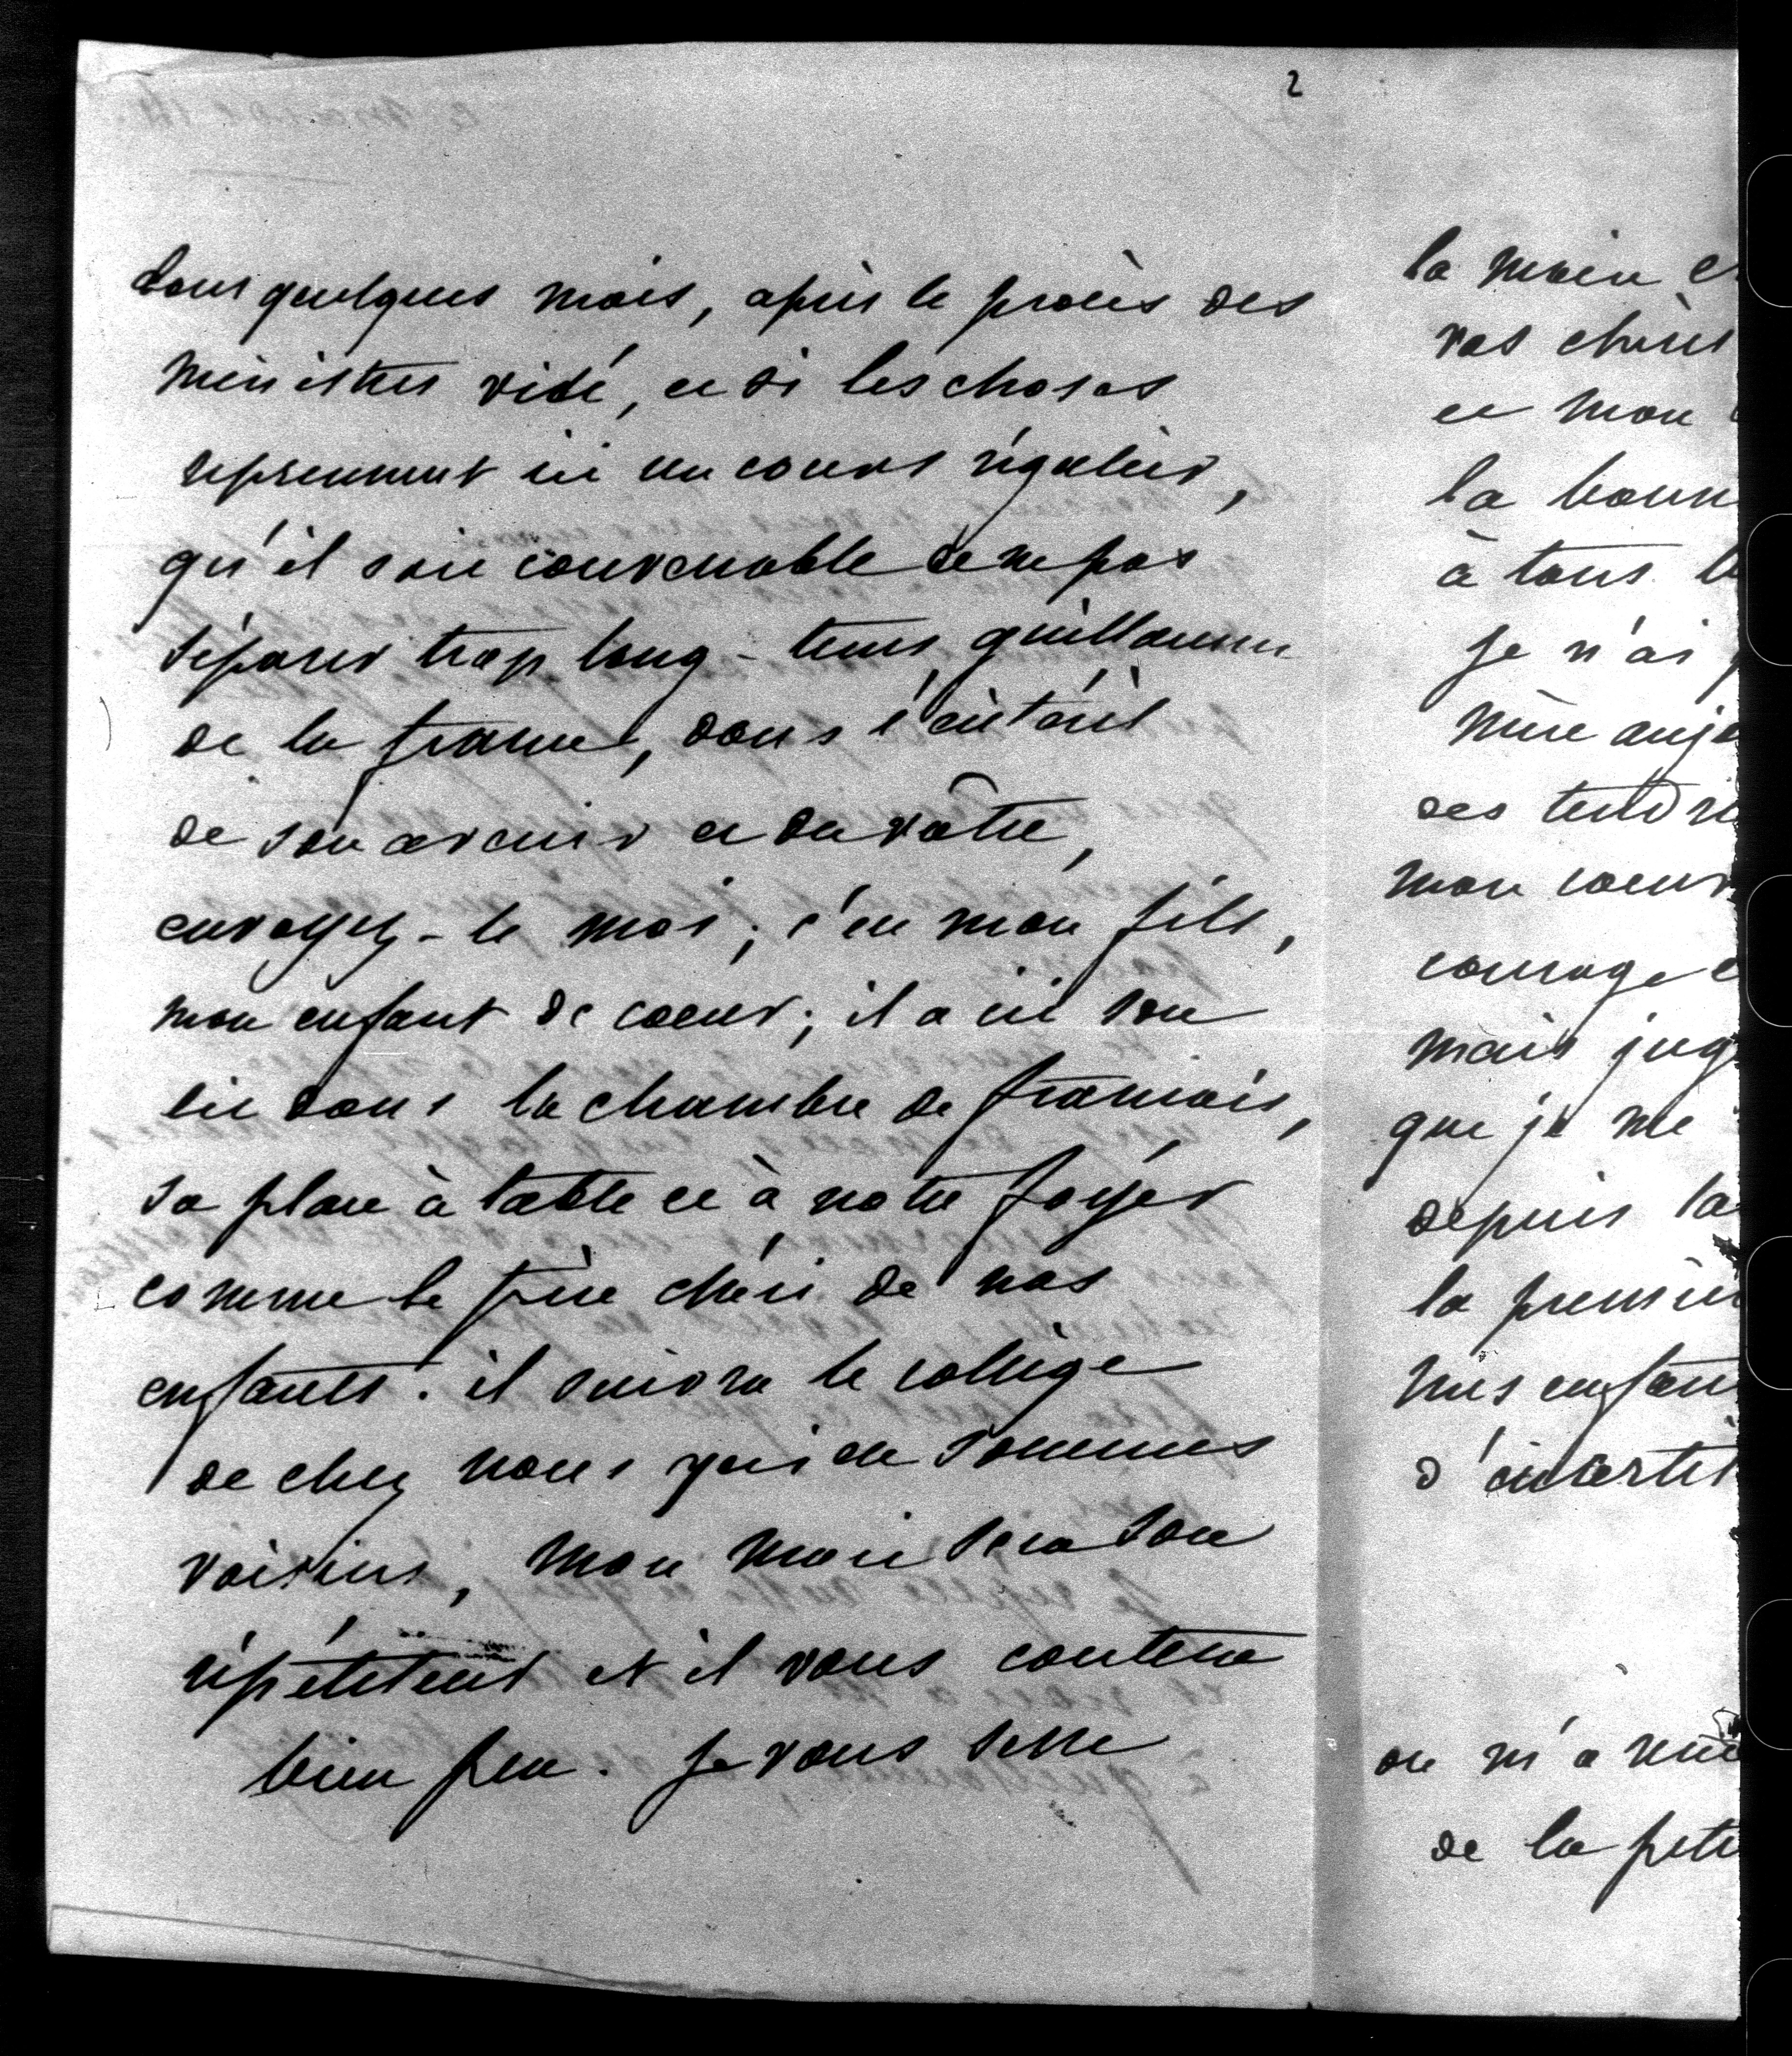 2
dans quelques mois, après le procès des
ministres vidé, et si les choses
reprennent ici un cours régulier,
qu'il soit convenable de ne pas
séparer trop long-tems guillaume
de la france, dans l'intérêt
de son avenir et du vôtre,
envoyez-le moi; c'est mon fils,
mon enfant de coeur; il a ici son
lit dans la chambre de françois,
sa place à table et à notre foyer
comme le frère chéri de nos
enfants. il suivra le collège
de chez nous qui en sommes
voisins, mon mari sera son
répétiteur et il vous coutera
bien peu. je vous serre
la main
vos chères
et mon
la bonn
à tous
je n'ai
mère auj
des tendr
mon coeur
courage
mais jug
que je me
depuis la
la premiè
mes enfan
d'incertit
on m'a
de la peti